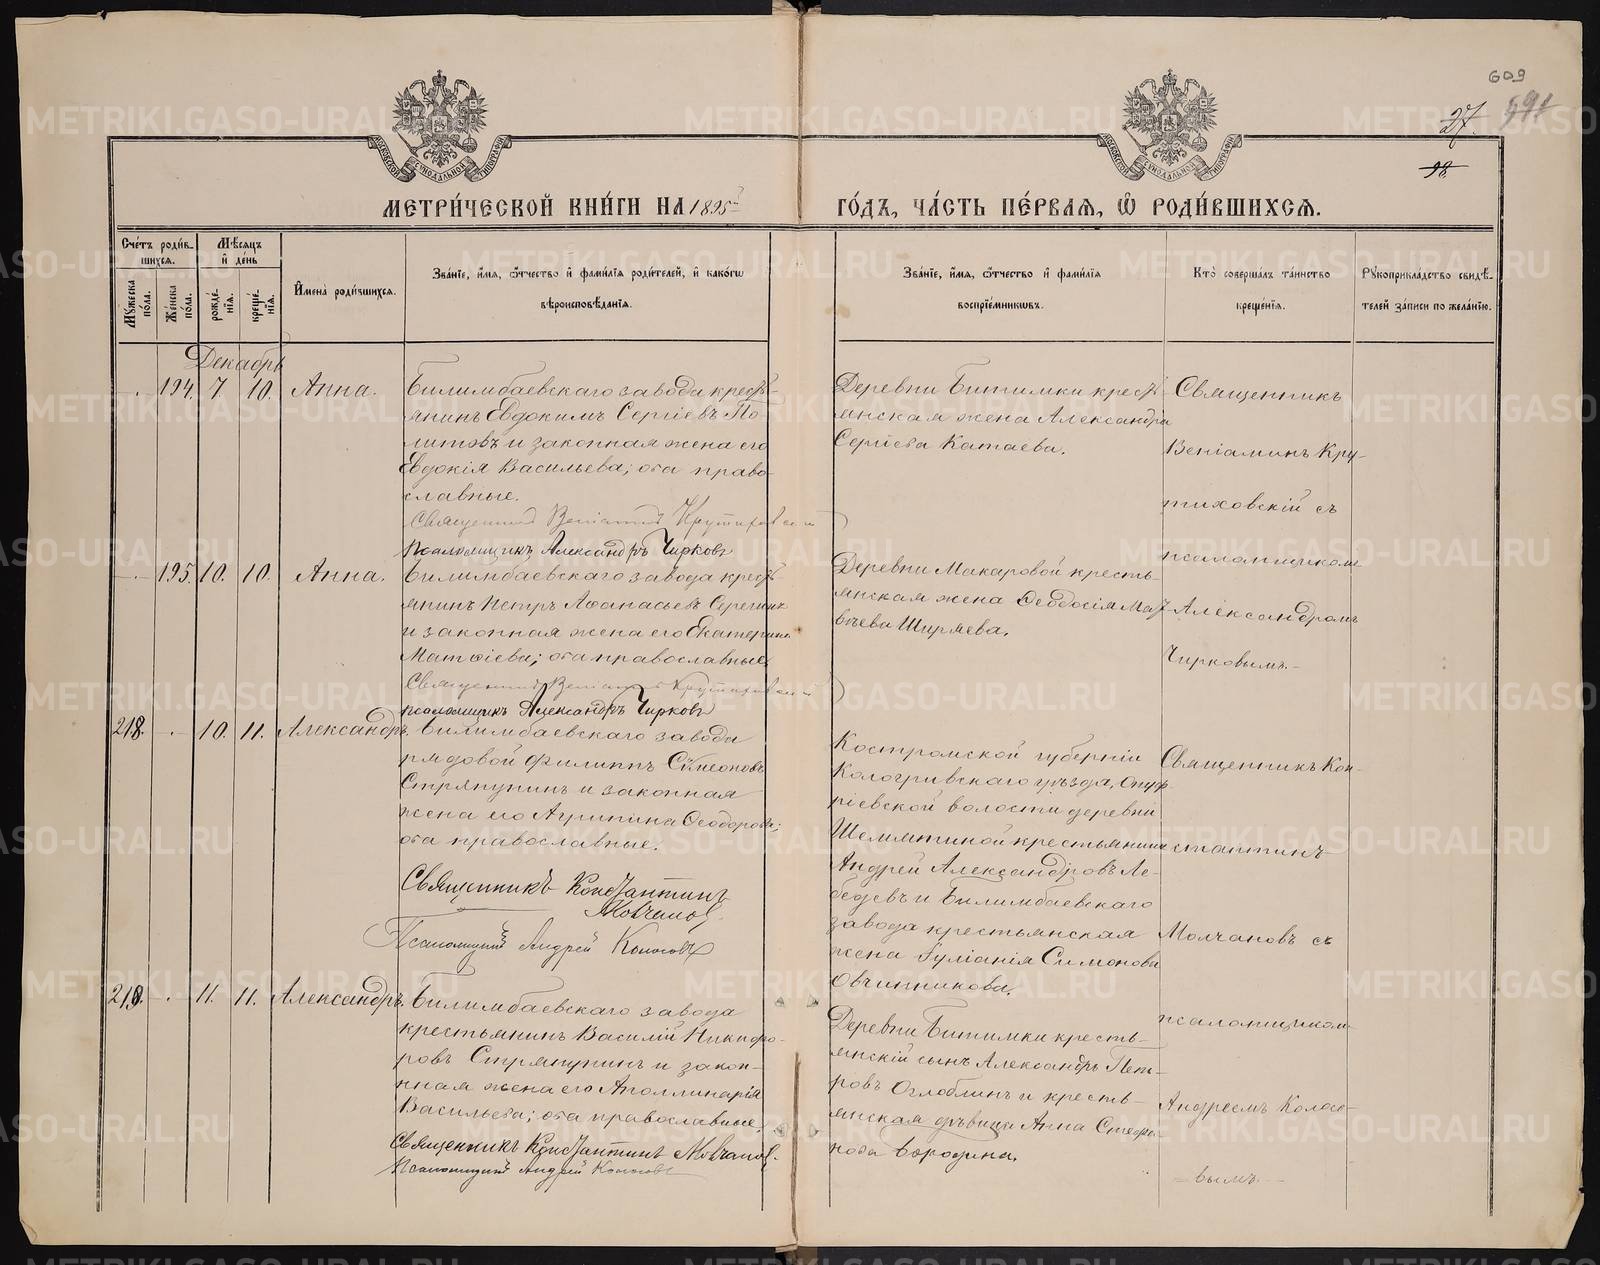 609
27. 591
98.
МОСКОВСКОЙ СУНОДАЛЬНОЙ ТИПОГРАФІИ
МОСКОВСКОЙ СУНОДАЛЬНОЙ ТИПОГРАФІИ
МЕТРИ́ЧЕСКОЙ КНИ́ГИ НА 1895 ГО́ДЪ, ЧА́СТЬ ПЕ́РВАЯ, Ѡ РОДИ́ВШИХСЯ.
Сче́тъ роди́в-
шихся.
Му́жеска пола.
Же́нска по́ла.
Мѣ́сяцъ и де́нь
рожде́-
нія.
креще́-
нія.
И҆мена̀ роди́вшихся.
Зва́ніе, и҆́мя, ѻ҆́тчество и҆ фами́лія роди́телей, и҆ како́гѡ
вѣроисповѣ́данія.
Зва́ніе, и҆́мя, ѻ҆́тчество и҆ фами́лія
воспріе́мниковъ.
Кто̀ соверша́лъ та́инство
креще́нія.
Рꙋкоприкла́дство свидѣ́-
телей за́писи по жела́нію.
Декабрь
194. 7. 10. Анна.
Билимбаевскаго завода кресть-
янинъ Евдокимъ Сергіевъ По-
литовъ и законная жена его
Евдокія Васильева; оба право-
славные.
Священникъ Веніаминъ Крутиховскій
Псаломщикъ Александръ Чирковъ
Деревни Битимки кресть-
янская жена Александра
Сергіева Катаева.
Священникъ
Веніаминъ Кру-
тиховскій съ
псаломщикомъ
Александромъ
Чирковымъ.
195. 10. 10. Анна.
Билимбаевскаго завода кресть-
янинъ Петръ Аѳанасьевъ Серегинъ
и законная жена его Екатерина
Матѳіева; оба православные.
Священникъ Веніаминъ Крутиховскій
псаломщикъ Александръ Чирковъ
Деревни Макаровой кресть-
янская жена Ѳеодосія Мат-
вѣева Ширяева.
218. 10. 11. Александръ.
Билимбаевскаго завода
рядовой Филиппъ Сѵмеоновъ
Стряпунинъ и законная
жена его Агрипина Ѳеодорова;
оба православные.
Священникъ Константинъ
Молчановъ
Псаломщикъ Андрей Колосовъ
Костромской губерніи
Кологривскаго уѣзда,
ріевской волости деревни
Шемятиной крестьянинъ
Андрей Александровъ Ле-
бедевъ и Билимбаевскаго
завода крестьянская
жена Іуліанія Симонова
Овчинникова.
Священникъ Кон-
стантинъ
Молчановъ съ
псаломщикомъ
Андреемъ Колосо-
вымъ.
219. 11. 11. Александръ.
Билимбаевскаго завода
крестьянинъ Василій Никифо-
ровъ Стряпунинъ и закон-
нная жена его Аполлинарія
Васильева; оба православные.
Священникъ Константинъ Молчановъ.
Псаломщикъ Андрей Колосовъ
Деревни Битимки кресть-
янскій сынъ Александръ Пет-
ровъ Оглоблинъ и кресть-
янская дѣвица Анна Стефа-
нова Бородина.